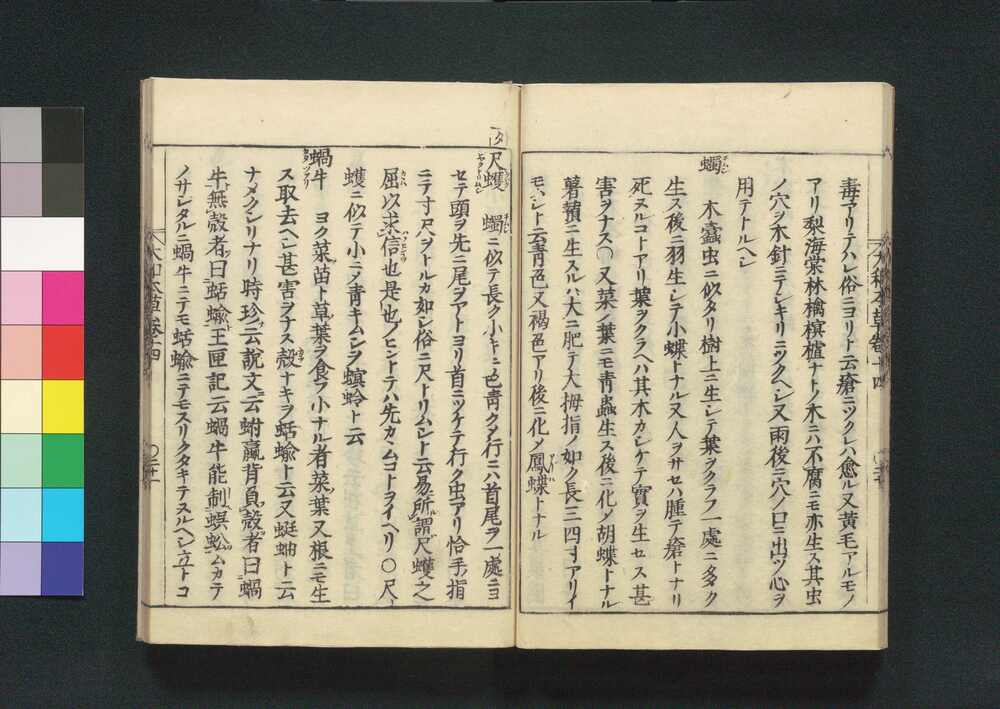 毒アリテハレ俗ニヨリト云瘡ニツクレハ愈ル又黃毛アルモノ
アリ梨海棠林檎榠樝ナトノ木ニハ不腐ニモ亦生ス其虫
ノ穴ヲ木針ニテレキリニツクヘシ又雨後ニ穴ノ口ニ出ツ心ヲ
用テトルヘシ
蠋 木蠧虫ニ似タリ樹上ニ生レテ葉ヲクラフ一處ニ多ク
生ス後ニ羽生シテ小蝶トナル又人ヲサセハ腫テ瘡トナリ
死ヌルコトアリ葉ヲクラヘハ其木カレケテ實ヲ生セス甚
害ヲナス〇又菜ノ葉ニモ青蟲生ス後ニ化ノ胡蝶トナル
薯蕷ニ生スルハ大ニ肥テ大拇指ノ如ク長三四寸アリイ
モムシト云青色又褐色アリ後ニ化メ鳳蝶トナル
大和本草卷十四
尺蠖 蠋ニ似テ長ク小キニ色青クメ行ニハ首尾ヲ一處ニヨ
セテ頭ヲ先ニ尾ヲアトヨリ首ニツケテ行ク虫アリ恰手指
ニテ寸尺ヲトルカ如シ俗ニ尺トリムシト云易所謂尺蠖之
屈以求信也是也ノヒントテハ先カヽムコトヲイヘリ〇尺
蠖ニ似テ小ニメ青キムシヲ螟蛉ト云
蝸牛 ヨク菜苗ト草葉ヲ食ラ小ナル者菜葉又根ニモ生
ス取去ヘシ甚害ヲナス殼ナキヲ蛞蝓ト云又蜒蚰ト云
ナメクシリナリ時珍云說文云蚹蠃背負殼者曰蝸
牛無殼者曰蛞蝓王匣記云蝸牛能制蜈蚣ムカテ
ノサシタルニ蝸牛ニテモ蛞蝓ニテモスリクタキテスルヘシ立トコ
大和本草卷十四
〇三十一